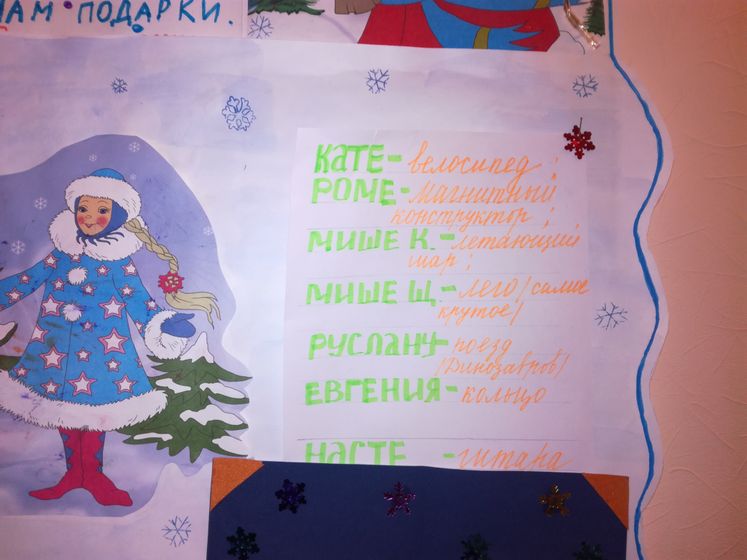 НАМ ПОДАРКИ.
КАТЕ - велосипед;
РОМЕ - магнитный
конструктор;
МИШЕ К. - летающий
шар;
МИШЕ Щ. - лего (самое
крутое)
РУСЛАНУ - поезд
(Динозавров)
ЕВГЕНИЯ - кольцо
НАСТЕ - гитара